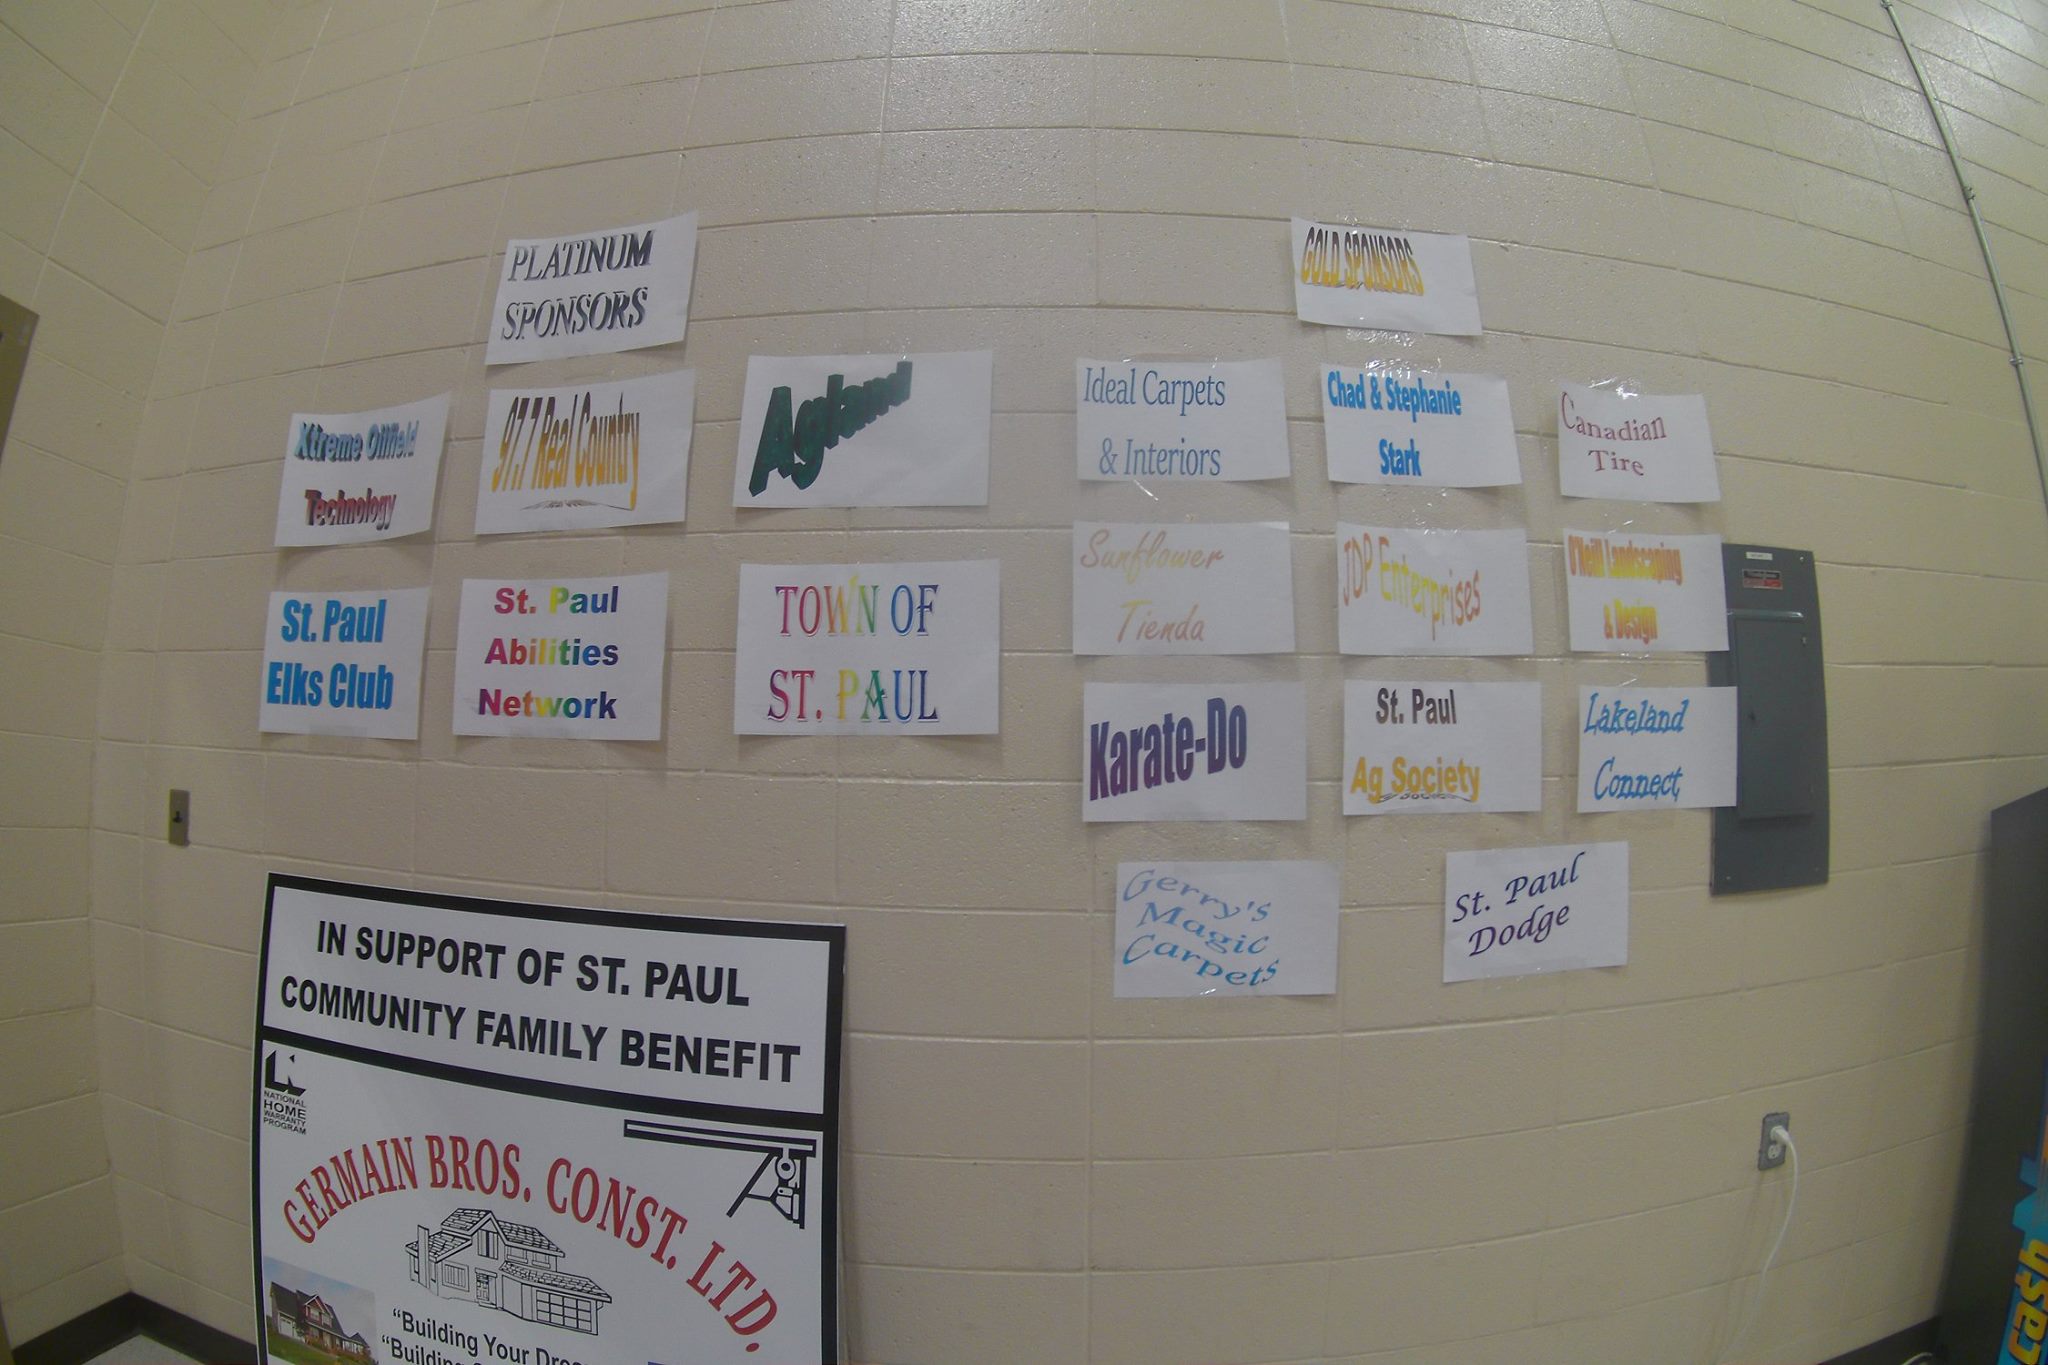 PLATINUM
SPONSORS
Xtreme Oilfield
Technology
97.7 Real Country
Agland
St. Paul
Elks Club
St. Paul
Abilities
Network
TOWN OF
ST. PAUL
GOLD SPONSORS
Ideal Carpets
& Interiors
Chad & Stephanie
Stark
Canadian
Tire
Sunflower
Tienda
JDP Enterprises
O'Neill Landscaping
& Design
Karate-Do
St. Paul
Ag Society
Lakeland
Connect
Gerry's
Magic
Carpets
St. Paul
Dodge
IN SUPPORT OF ST. PAUL
COMMUNITY FAMILY BENEFIT
NATIONAL
HOME
WARRANTY
PROGRAM
GERMAIN BROS. CONST. LTD.
"Building Your
"Building
cash